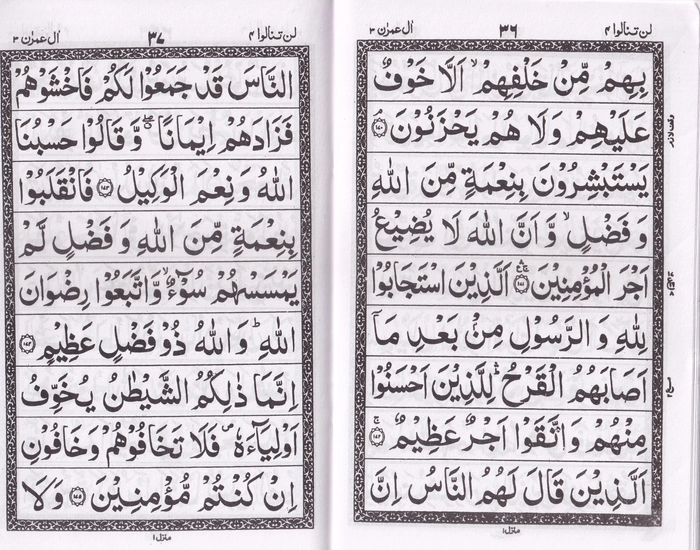 لن تنالوا ۴ ۳۶ اٰل عمرٰن ۳
بِهِمْ مِّنْ خَلْفِهِمْ ۙ اَلَّا خَوْفٌ
عَلَيْهِمْ وَلَا هُمْ يَحْزَنُوْنَ ۘ ﴿۱۷۰﴾
يَسْتَبْشِرُوْنَ بِنِعْمَةٍ مِّنَ اللّٰهِ
وَفَضْلٍ ۙ وَّاَنَّ اللّٰهَ لَا يُضِيْعُ
اَجْرَ الْمُؤْمِنِيْنَ ﴿۱۷۱﴾ اَلَّذِيْنَ اسْتَجَابُوْا
لِلّٰهِ وَالرَّسُوْلِ مِنْۢ بَعْدِ مَاۤ
اَصَابَهُمُ الْقَرْحُ ۛ لِلَّذِيْنَ اَحْسَنُوْا
مِنْهُمْ وَاتَّقَوْا اَجْرٌ عَظِيْمٌ ۚ ﴿۱۷۲﴾
اَلَّذِيْنَ قَالَ لَهُمُ النَّاسُ اِنَّ
منزل۱
لن تنالوا ۴ ۳۷ اٰل عمرٰن ۳
النَّاسَ قَدْ جَمَعُوْا لَكُمْ فَاخْشَوْهُمْ
فَزَادَهُمْ اِيْمَانًا ۖ وَّقَالُوْا حَسْبُنَا
اللّٰهُ وَنِعْمَ الْوَكِيْلُ ﴿۱۷۳﴾ فَانْقَلَبُوْا
بِنِعْمَةٍ مِّنَ اللّٰهِ وَفَضْلٍ لَّمْ
يَمْسَسْهُمْ سُوْٓءٌ ۙ وَّاتَّبَعُوْا رِضْوَانَ
اللّٰهِ ؕ وَاللّٰهُ ذُوْ فَضْلٍ عَظِيْمٍ ﴿۱۷۴﴾
اِنَّمَا ذٰلِكُمُ الشَّيْطٰنُ يُخَوِّفُ
اَوْلِيَآءَهٗ ۪ فَلَا تَخَافُوْهُمْ وَخَافُوْنِ
اِنْ كُنْتُمْ مُّؤْمِنِيْنَ ﴿۱۷۵﴾ وَلَا
منزل۱